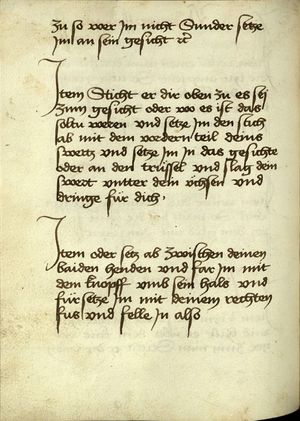 zu so wer im nicht Sunder setze
im an sein gesicht etc
Item Sticht er dir oben zu es sei
zum gesicht oder wo es ist das
soltu weren und setze im den stich
ab mit dem vordern teil deins
swertz und setze im in das gesichte
oder an den trüssel und slag dein
swert unter dein üchsen und
dringe für dich,
Item oder setz ab zwischen deinen
baiden henden und far im mit
dem knopff umb sein hals und
fürsetze im mit deinem rechten
fus und felle in also